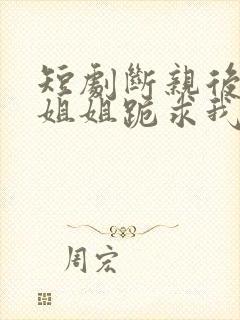 短劇斷親後
姐姐跪求我
周宏